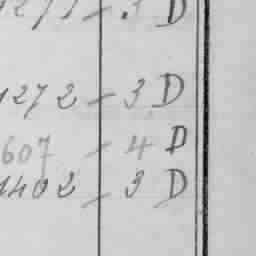 1272 - 3 D
607 - 4 D
1402 - 3 D